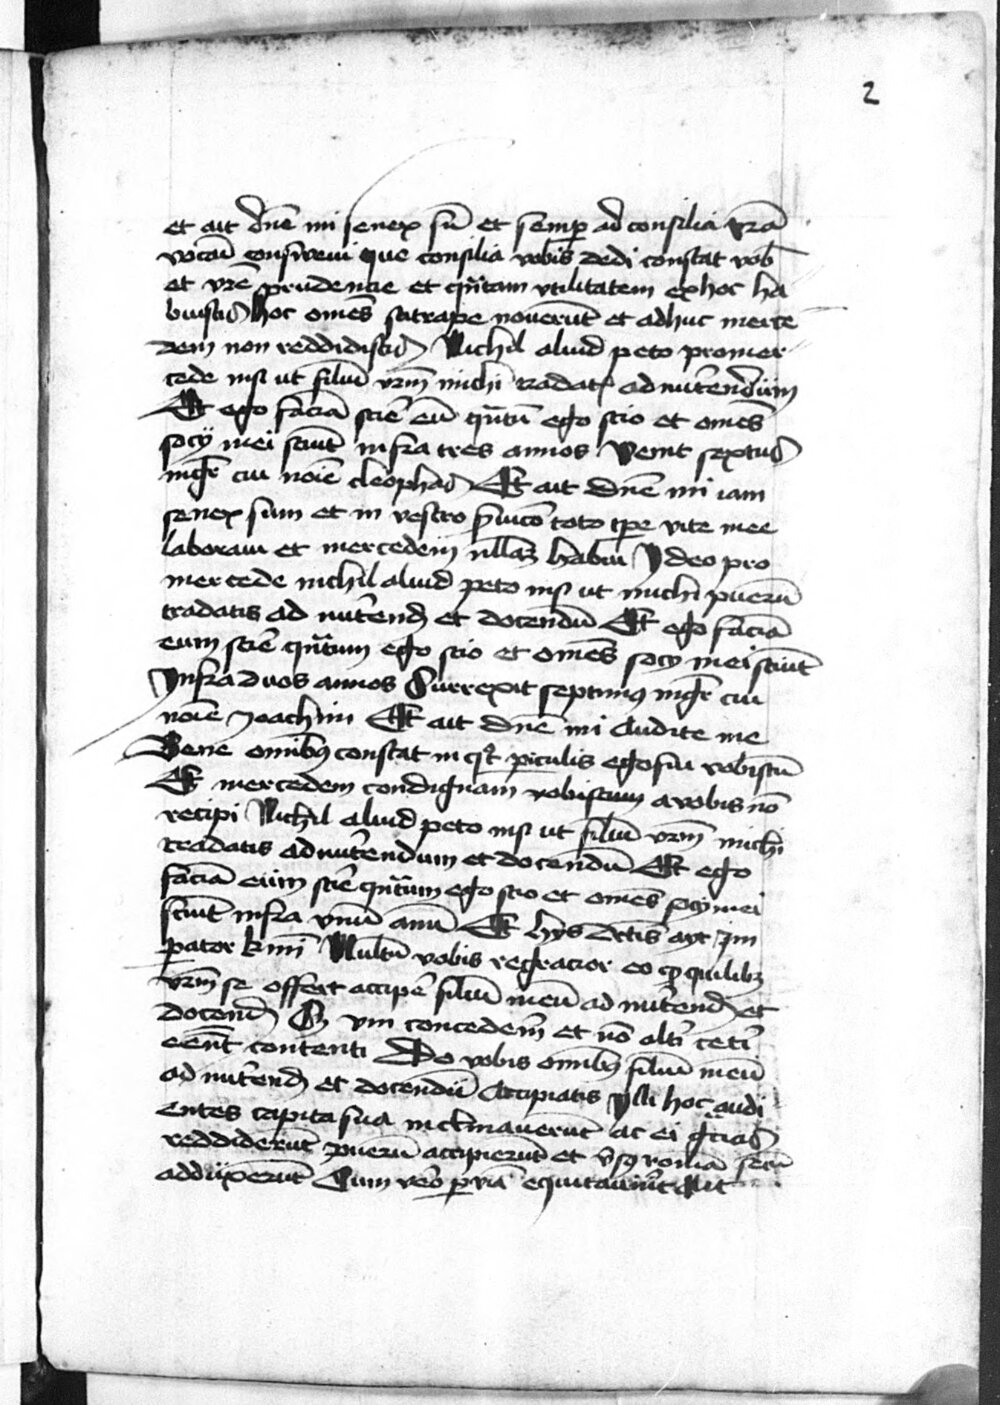 2
et ait dn̄e mi senex sū et semp ad consilia vr̄a
vocatꝰ consuevi que consilia vobis dedi constat vob̄
et vr̄e prudencie et qūtam vtilitatem ex hoc ha
buistis hoc om̄es satrape noverūt et adhuc merce
dem non reddidistis Nichil aliud peto pro mer
cede nisi ut filiū vr̄m michi tradatis ad nut'endum
Et ego faciā scir̄e eū qūtū ego scio et om̄es
socij mei sciūt infra tres annos Venit sextus
mgr̄ cui noīe cleophas Et ait dn̄e mi iam
senex sum et in vestro s̄vicio toto tp̄e vite mee
laboravi et mercedem nullā habui Ydeo pro
mercede nichil aliud peto nisi ut michi puerū
tradatis ad nut'end et docendū Et ego faciā
eum scir̄e qūtum ego scio et om̄es socij mei sciūt
Infra duos annos Surrexit septimus mgr̄ cui
noīe Joachim Et ait dn̄e mi Audite me
Bene omībus constat in periculis ego fui vobiscū
Et mercedem condignam vobiscum a vobis nō
recipi Nichil aliud peto nisi ut filiū vr̄m michi
tradatis ad nut'endum et docendū Et ego
faciā eum scir̄e qūtum ego scio et om̄es socij mei
sciūt infra vnū annū Et hijs dc̄tis ayt Im
pator Multū vobis regracior eo qꝫ quilibꝫ
vr̄m se offert accip̄e filiū meū ad nut'end et
docend Si vni concedem̄ et nō alt'i cet'i
eēnt contenti Do vobis omībus filiū meū
ad nut'end et docendū Accipiatis Ylli hoc audi
entes capita sua inclinaverūt ac ei gr̄cias
reddiderūt puerū accipierūt et vsqꝫ romā secū
adduxerūt Cum vero p viā equitaverūt Ait